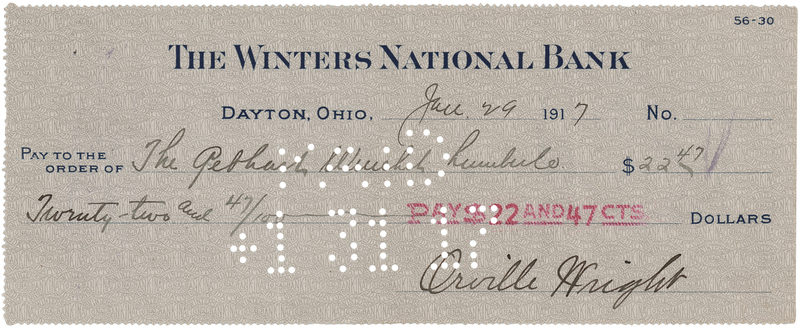 56-30
THE WINTERS NATIONAL BANK
DAYTON, OHIO, Jan. 29 1917 No.
PAY TO THE ORDER OF The Gebhart Lumber Co $22 47
Twenty-two and 47/100 PAY $22 AND 47 CTS DOLLARS
PAID
1 31 17
Orville Wright